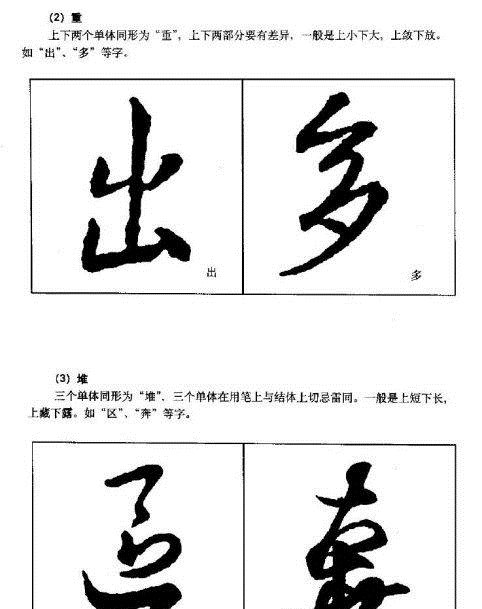 （2）重
上下两个单体同形为“重”，上下两部分要有差异，一般是上小下大，上敛下放。
如“出”、“多”等字。
出 多
出 多
（3）堆
三个单体同形为“堆”，三个单体在用笔上与结体上切忌雷同。一般是上短下长，
上藏下露。如“区”、“奔”等字。